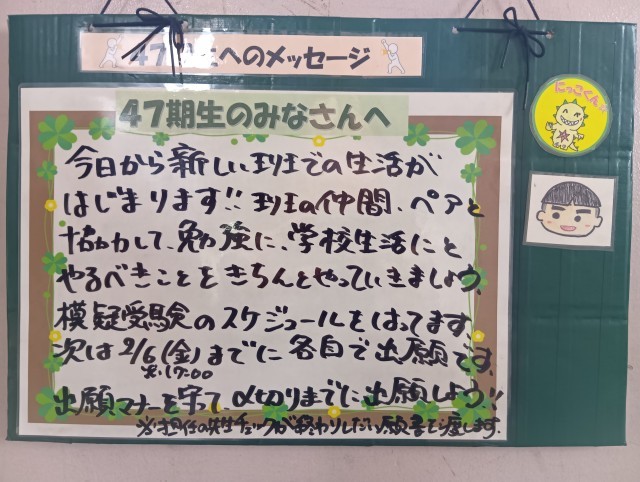 47期生へのメッセージ
にっこくん
47期生のみなさんへ
今日から新しい班での生活が
はじまります!! 班の仲間、ペアと
協力して、勉強に、学校生活にと
やるべきことをきちんとやっていきましょう。
模疑受験のスケジュールをはってます。
次は2/6(金)までに各自で出願です。
17:00
出願マナーを守って、〆切りまでに出願しよう!!
※担任の先生チェックが終わりしだい願書を渡します。